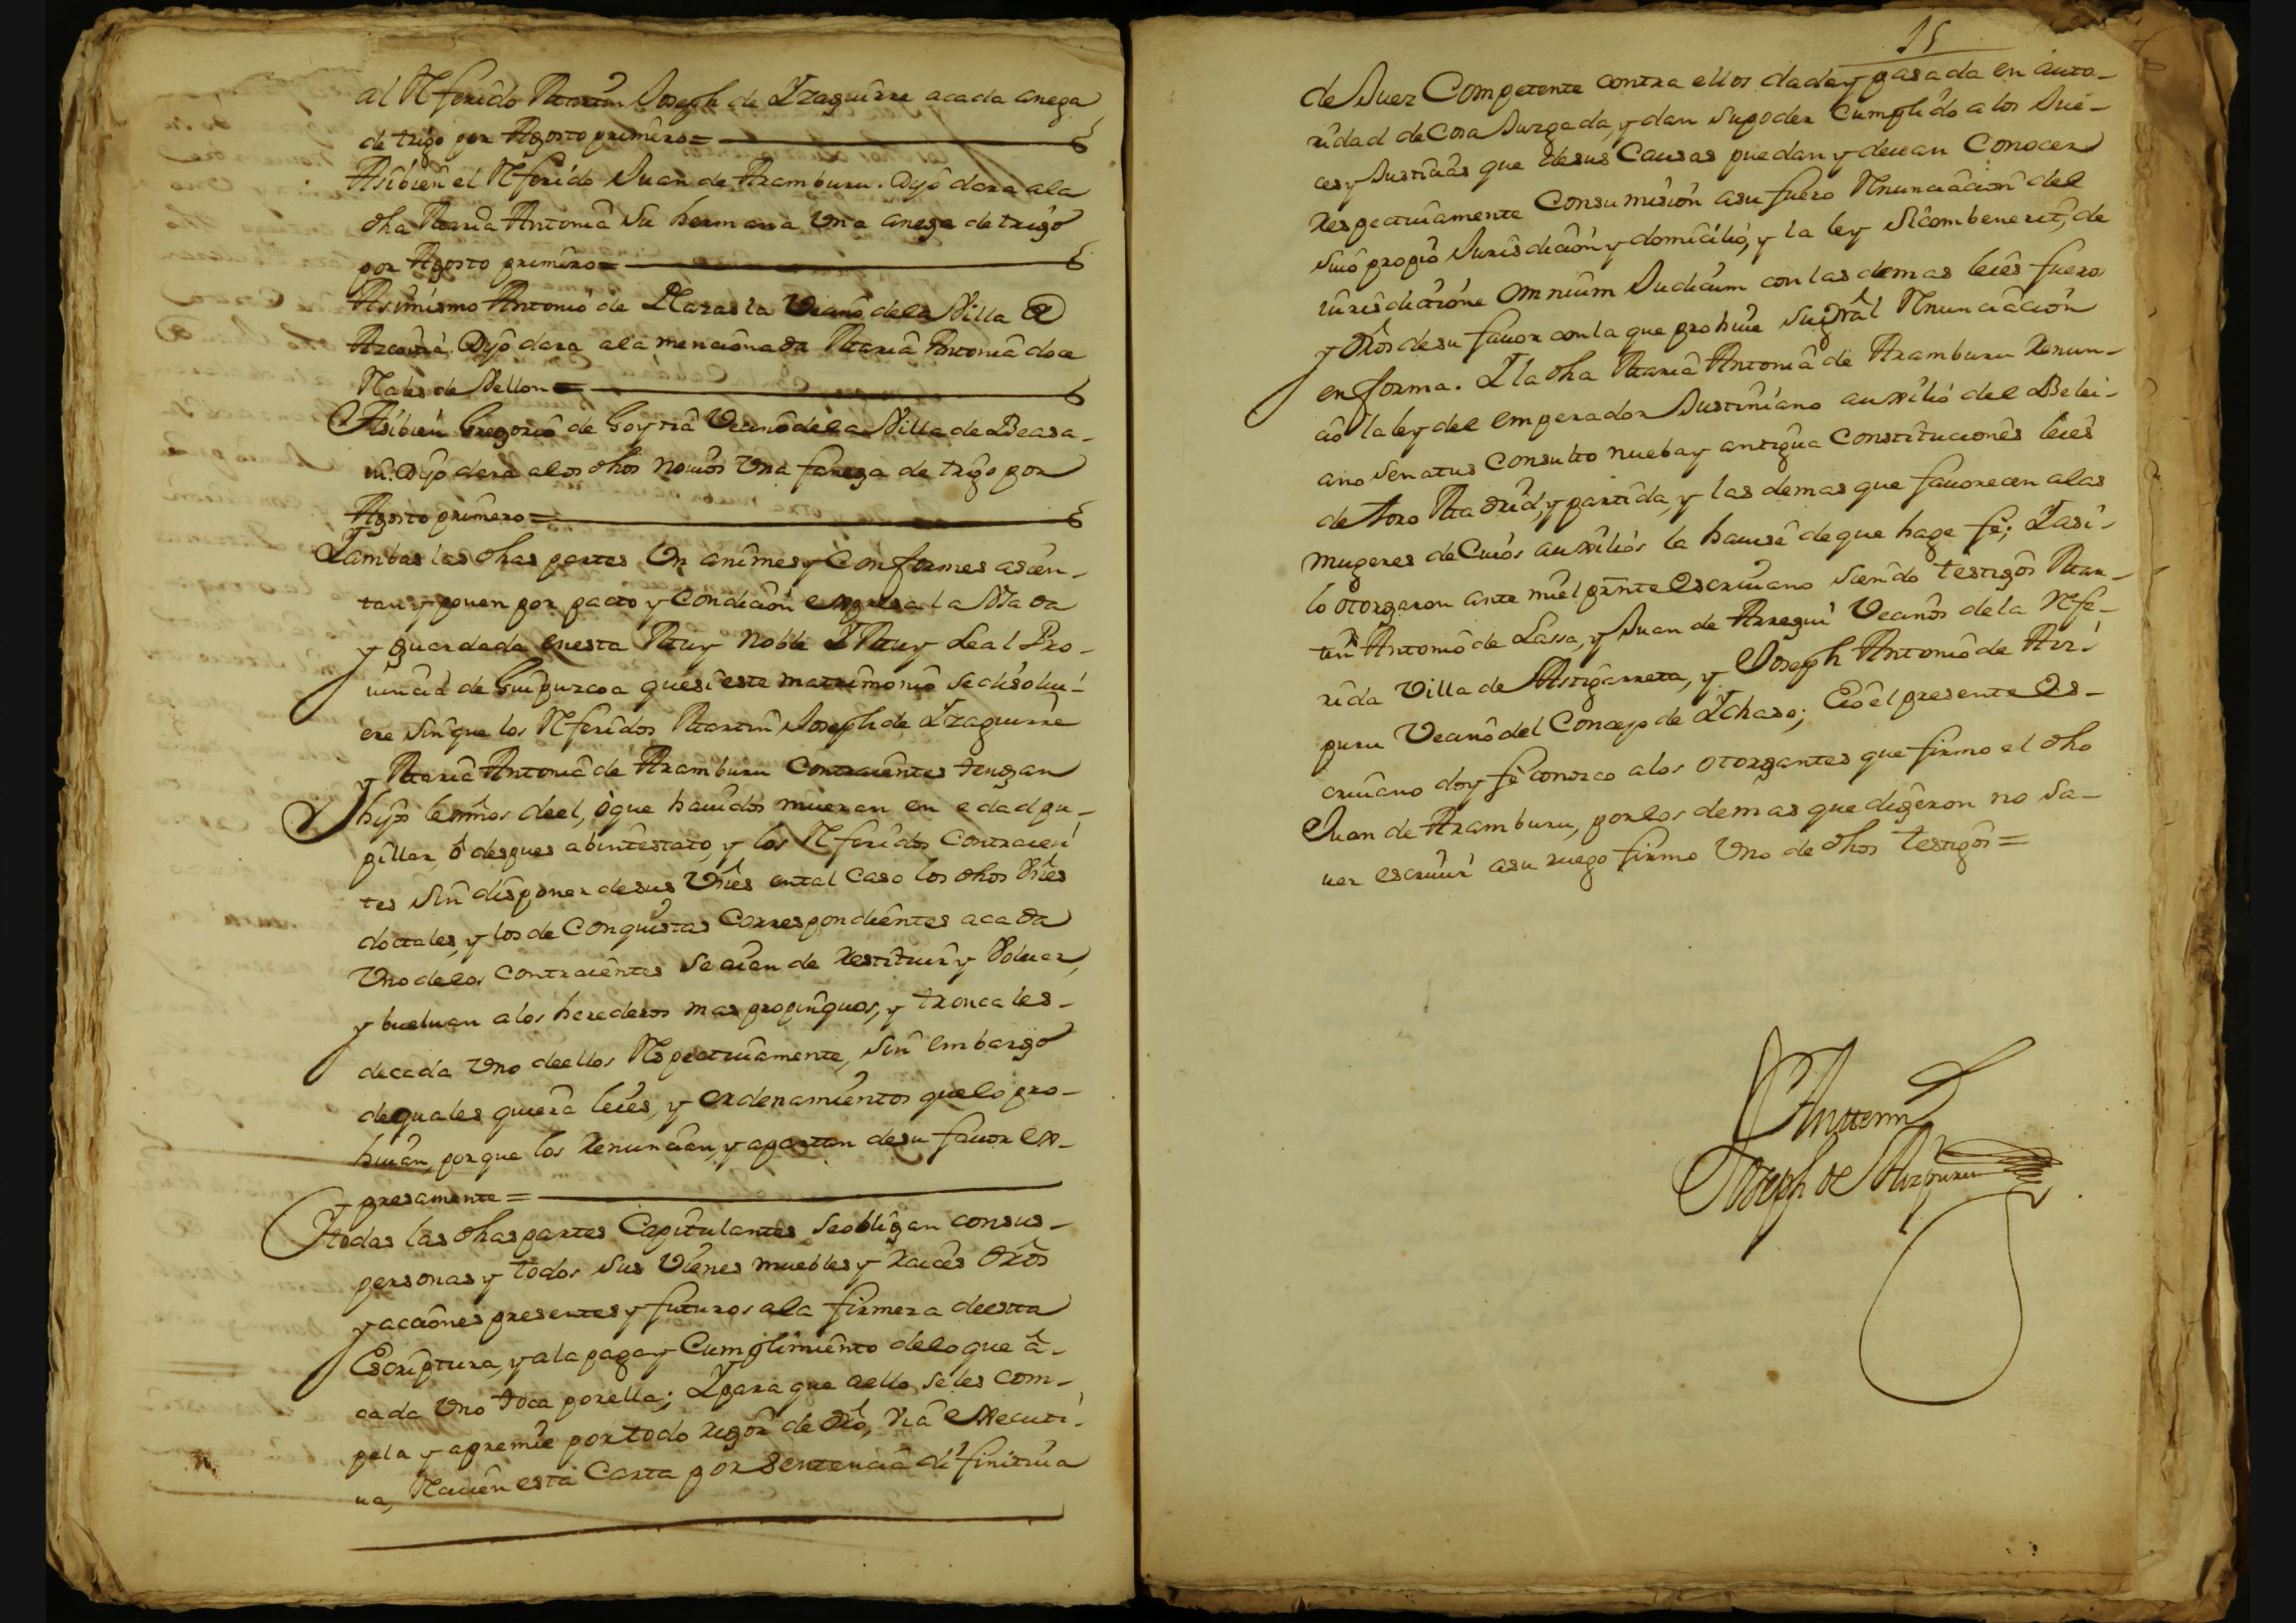 al Referido Martin Joseph de Yzaguirre acada anega
de trigo por Agosto primero=
Asibien el Referido Juan de Aramburu. Dijo dara ala
dha Maria Antonia su hermana Una anega de trigo
por Agosto primero=
Asimismo Antonio de Plazasla Vecino dela Villa @
Azcoitia. Dijo dara ala mencionada Maria Antonia doce
Reales de Vellon=
Asibien Gregorio de Goytia Vecino dela Villa de Beasa-
in. Dijo dara alos dhos novios Una fanega de trigo por
Agosto primero=
Yambas las dhas partes Unanimes y Conformes asien-
tan y ponen por pacto y Condicion expresa la Usada
y guardada enesta Muy Noble Y Muy Leal Pro-
vincia de Guipuzcoa quesi este matrimonio se disolvi-
ere sin que los Referidos Martin Joseph de Yzaguirre
y Maria Antonia de Aramburu Contraientes tengan
hijos lexmos deel, ò que havidos mueran en edad pu-
pillar, ó despues abintestato, y los Referidos Contraien-
tes sin disponer desus Vnes ental Caso los dhos Vnes
dotales, y los de Conquistas Correspondientes acada
Uno delos Contraientes se aian de Restituir y Volver,
y buelvan alos herederos mas propinquos, y troncales
decada Uno deellos Respectivamente, sin embargo
dequales quiera leies, y ordenamientos quelo pro-
hivan, porque los Renuncian, y apartan desu favor ex-
presamente=
Ytodas las dhas partes Capitulantes seobligan consus
personas y todos sus Vienes muebles y Raices dros
y acciones presentes y futuros ala firmeza deesta
Escriptura, y ala paga y Cumplimiento delo que â
cada Uno toca porella; Ypara que aello seles com-
pela y apremie por todo rigor de dro, via executi-
va, Raciven esta Carta por sentencia difinitiva
15
de Juez Competente contra ellos dada y pasada en auto-
ridad de Cosa Juzgada, y dan supoder Cumplido alos Jue-
ces y Justicias que desus Causas puedan y devan Conocer
Respectivamente Consumision asu fuero Renunciacion del
suio propio Jurisdicion y domicilio, y la ley sicombenerit, de
iurisdictione omnium Judicum con las demas leies fueros
y dros desu favor con la que prohive su gral Renunciacion
en forma. Y la dha Maria Antonia de Aramburu Renun-
cio la ley del emperador Justiniano auxilio del Belei-
ano senatus Consulto nueba y antigua Constituciones leies
de Toro Madrid, y partida, y las demas que favorecen alas
mugeres de Cuios auxilios la havise de que hage fe; Y asi
lo otorgaron ante mi el prnte escrivano siendo testigos Mar-
tin Antonio de Lassa, y Juan de Arregui Vecinos de la Refe-
rida Villa de Astigarreta, y Joseph Antonio de Azi-
puru Vecino del Concejo de Ychaso; Eio el presente es-
crivano doy fe conozco alos otorgantes que firmo el dho
Juan de Aramburu, porlos demas que digeron no sa-
ver escrivir asu ruego firmo Uno de dhos testigos=
Antemi
Joseph de Aizpuru